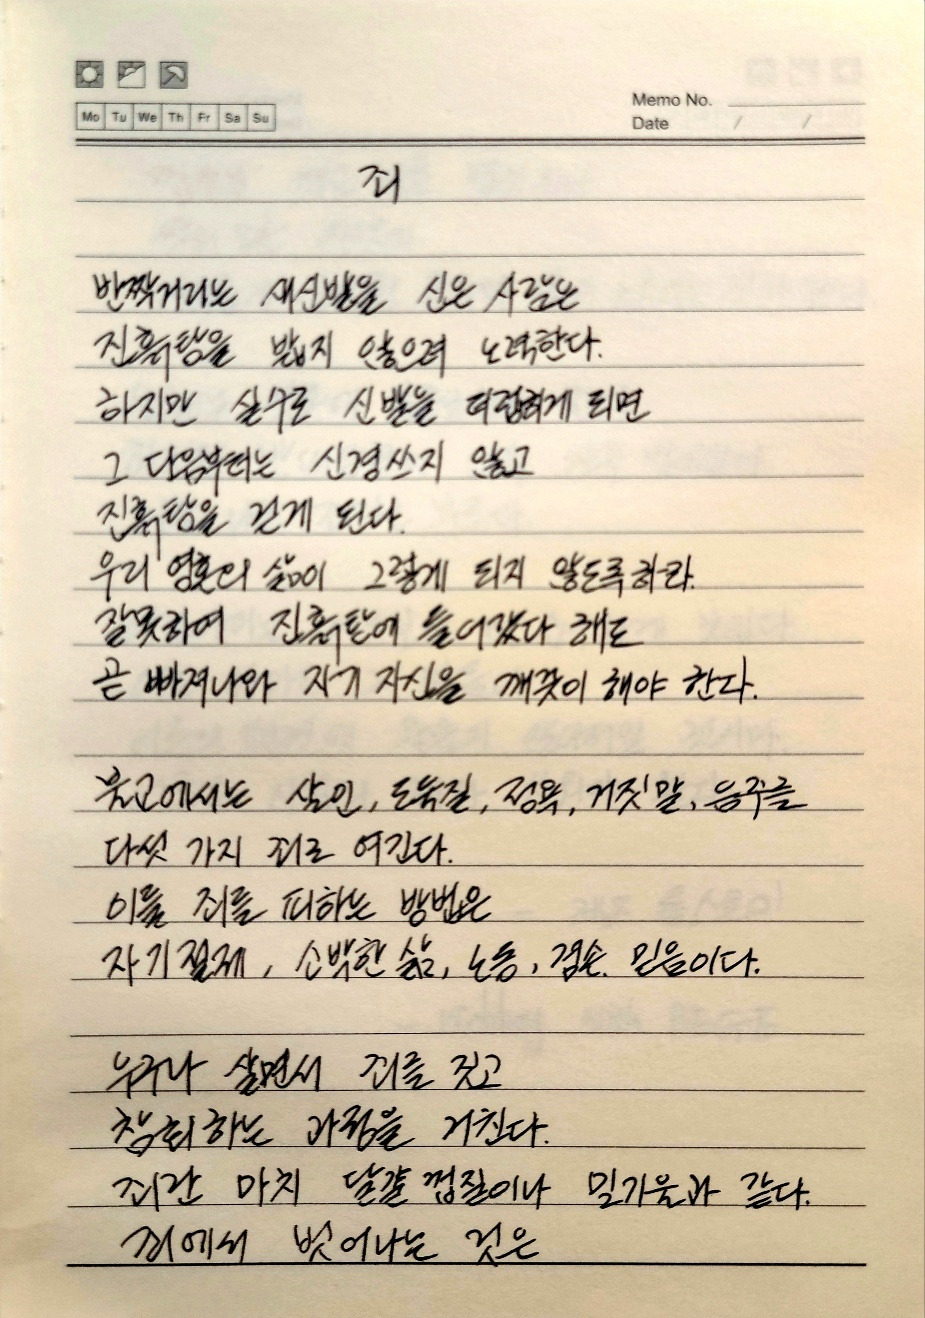 Mo Tu We Th Fr Sa Su
Memo No.
Date / /
죄
반짝거리는 새신발을 신은 사람은
진흙탕을 밟지 않으려 노력한다.
하지만 실수로 신발을 더럽히게 되면
그 다음부터는 신경쓰지 않고
진흙탕을 걷게 된다.
우리 영혼의 삶이 그렇게 되지 않도록하라.
잘못하여 진흙탕에 들어갔다 해도
곧 빠져나와 자기 자신을 깨끗이 해야 한다.
불교에서는 살인, 도둑질, 정욕, 거짓말, 음주를
다섯 가지 죄로 여긴다.
이들 죄를 피하는 방법은
자기절제, 소박한 삶, 노동, 겸손. 믿음이다.
누구나 살면서 죄를 짓고
참회하는 과정을 거친다.
죄란 마치 달걀 껍질이나 밀기울과 같다.
죄에서 벗어나는 것은